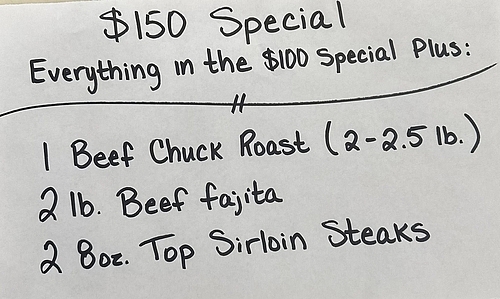 $150 Special
Everything in the $100 Special Plus:
1 Beef Chuck Roast (2-2.5 lb.)
2 lb. Beef fajita
2 8oz. Top Sirloin Steaks